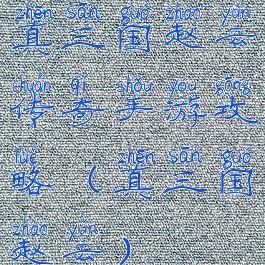 zhēn sān guó zhào yún
真三国赵云
chuán qí shǒu yóu gōng
传奇手游攻
lüè zhēn sān guó
略（真三国
zhào yún
赵云）